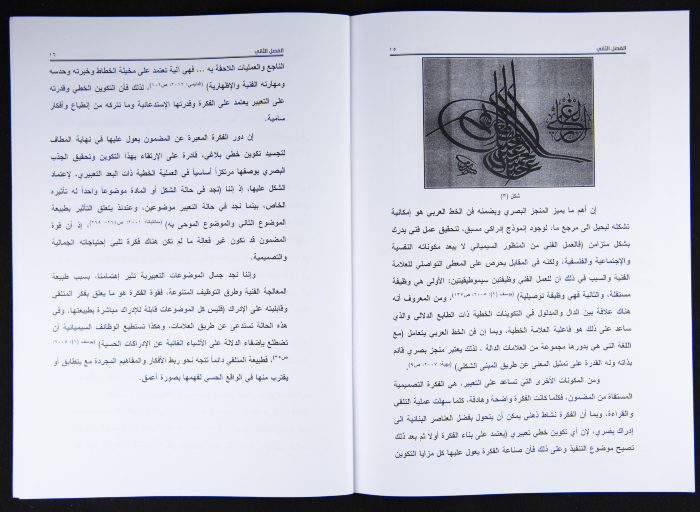 الفصل الثاني
١٥
شكل (٣)
إن أهم ما يميز المنجز البصري وبضمنه فن الخط العربي هو إمكانية
تشكله ليحيل الى مرجع ما، لوجود إنموذج إدراكي مسبق، لتحقيق عمل فني يدرك
بشكل متزامن (فالعمل الفني من المنظور السيميائي لا يبعد مكوناته النفسية
والإجتماعية والفلسفية، ولكنه في المقابل يحرص على المعطى التواصلي للعلامة
الفنية والسبب في ذلك ان للعمل الفني وظيفتين سيموطيقيتين: الأولى هي وظيفة
مستقلة، والثانية فهي وظيفة توصيلية) ، ومن المعروف أنه
هناك علاقة بين الدال والمدلول في التكوينات الخطية ذات الطابع الدلالي والذي
ساعد على ذلك هو فاعلية العلامة الخطية، وبما إن فن الخط العربي يتعامل (مع
اللغة التي هي بدورها مجموعة من العلامات الدالة ، لذلك يعتبر منجز بصري قائم
بذاته وله القدرة على تمثيل المعنى عن طريق المبنى الشكلي) .
ومن المكونات الأخرى التي تساعد على التعبير، هي الفكرة التصميمية
المستقاة من المضمون، فكلما كانت الفكرة واضحة وهادفة، كلما سهلت عملية التلقي
والقراءة، وبما أن الفكرة نشاط ذهني يمكن أن يتحول بفضل العناصر البنائية الى
إدراك بصري، لإن أي تكوين خطي تعبيري (يعتمد على بناء الفكرة أولا ثم بعد ذلك
تصبح موضوع التنفيذ وعلى ذلك فأن صناعة الفكرة يعول عليها كل مزايا التكوين
الفصل الثاني
١٦
الناجع والعمليات اللاحقة به ... فهي آلية تعتمد على مخيلة الخطاط وخبرته وحدسه
ومهارته الفنية والإظهارية) ، لذلك فأن التكوين الخطي وقدرته
على التعبير يعتمد على الفكرة وقدرتها الإستدعائية وما تتركه من إنطباع وأفكار
سامية.
إن دور الفكرة المعبرة عن المضمون يعول عليها في نهاية المطاف
لتجسيد تكوين خطي بلاغي، قادرة على الإرتقاء بهذا التكوين وتحقيق الجذب
البصري بوصفها مرتكزاً أساسياً في العملية الخطية ذات البعد التعبيري، لإعتماد
الشكل عليها، إذ إننا (نجد في حالة الشكل أو المادة موضوعاً واحداً له تأثيره
الخاص، بينما نجد في حالة التعبير موضوعين، وعندئذ يتعلق التأثير بطبيعة
الموضوع الثاني والموضوع الموحى به) ، إذ أن قوة
المضمون قد تكون غير فعالة ما لم تكن هناك فكرة تلبي إحتياجاته الجمالية
والتصميمية.
وإننا نجد جمال الموضوعات التعبيرية تثير إهتمامنا، بسبب طبيعة
المعالجة الفنية وطرق التوظيف المتنوعة، فقوة الفكرة هو ما يعلق بفكر المتلقي
وقابليته على الإدراك (فليس كل الموضوعات قابلة للإدراك مباشرة بطبيعتها، وفي
هذه الحالة تستدعى عن طريق العلامات، وهكذا تستطيع الوظائف السيميائية أن
تضطلع بإضفاء الدلالة على الأشياء الغائبة عن الإدراكات الحسية)
، فطبيعة المتلقي دائماً تتجه نحو ربط الأفكار والمفاهيم المجردة مع يتطابق أو
يقترب منها في الواقع الحسي لفهمها بصورة أعمق.